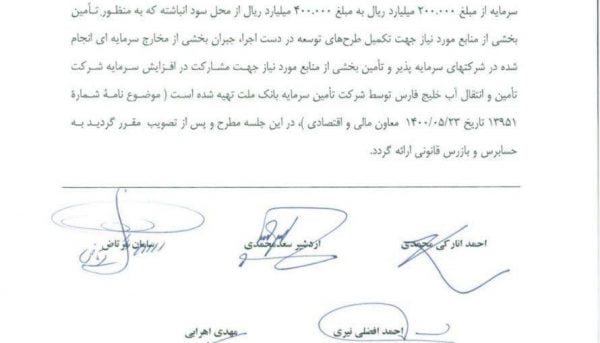 سرمایه از مبلغ ۲۰۰.۰۰۰ میلیارد ریال به مبلغ ۴۰۰.۰۰۰ میلیارد ریال از محل سود انباشته که به منظور تأمین
بخشی از منابع مورد نیاز جهت تکمیل طرح‌های توسعه در دست اجرا، جبران بخشی از مخارج سرمایه ای انجام
شده در شرکتهای سرمایه پذیر و تأمین بخشی از منابع مورد نیاز جهت مشارکت در افزایش سرمایه شرکت
تأمین و انتقال آب خلیج فارس توسط شرکت تأمین سرمایه بانک ملت تهیه شده است ( موضوع نامۀ شمارۀ
۱۳۹۵۱ تاریخ ۱۴۰۰/۰۵/۲۳ معاون مالی و اقتصادی )، در این جلسه مطرح و پس از تصویب مقرر گردید به
حسابرس و بازرس قانونی ارائه گردد.
احمد انارکی محمدی اردشیر سعدمحمدی سامان
احمد افضلی نیری مهدی اهرابی